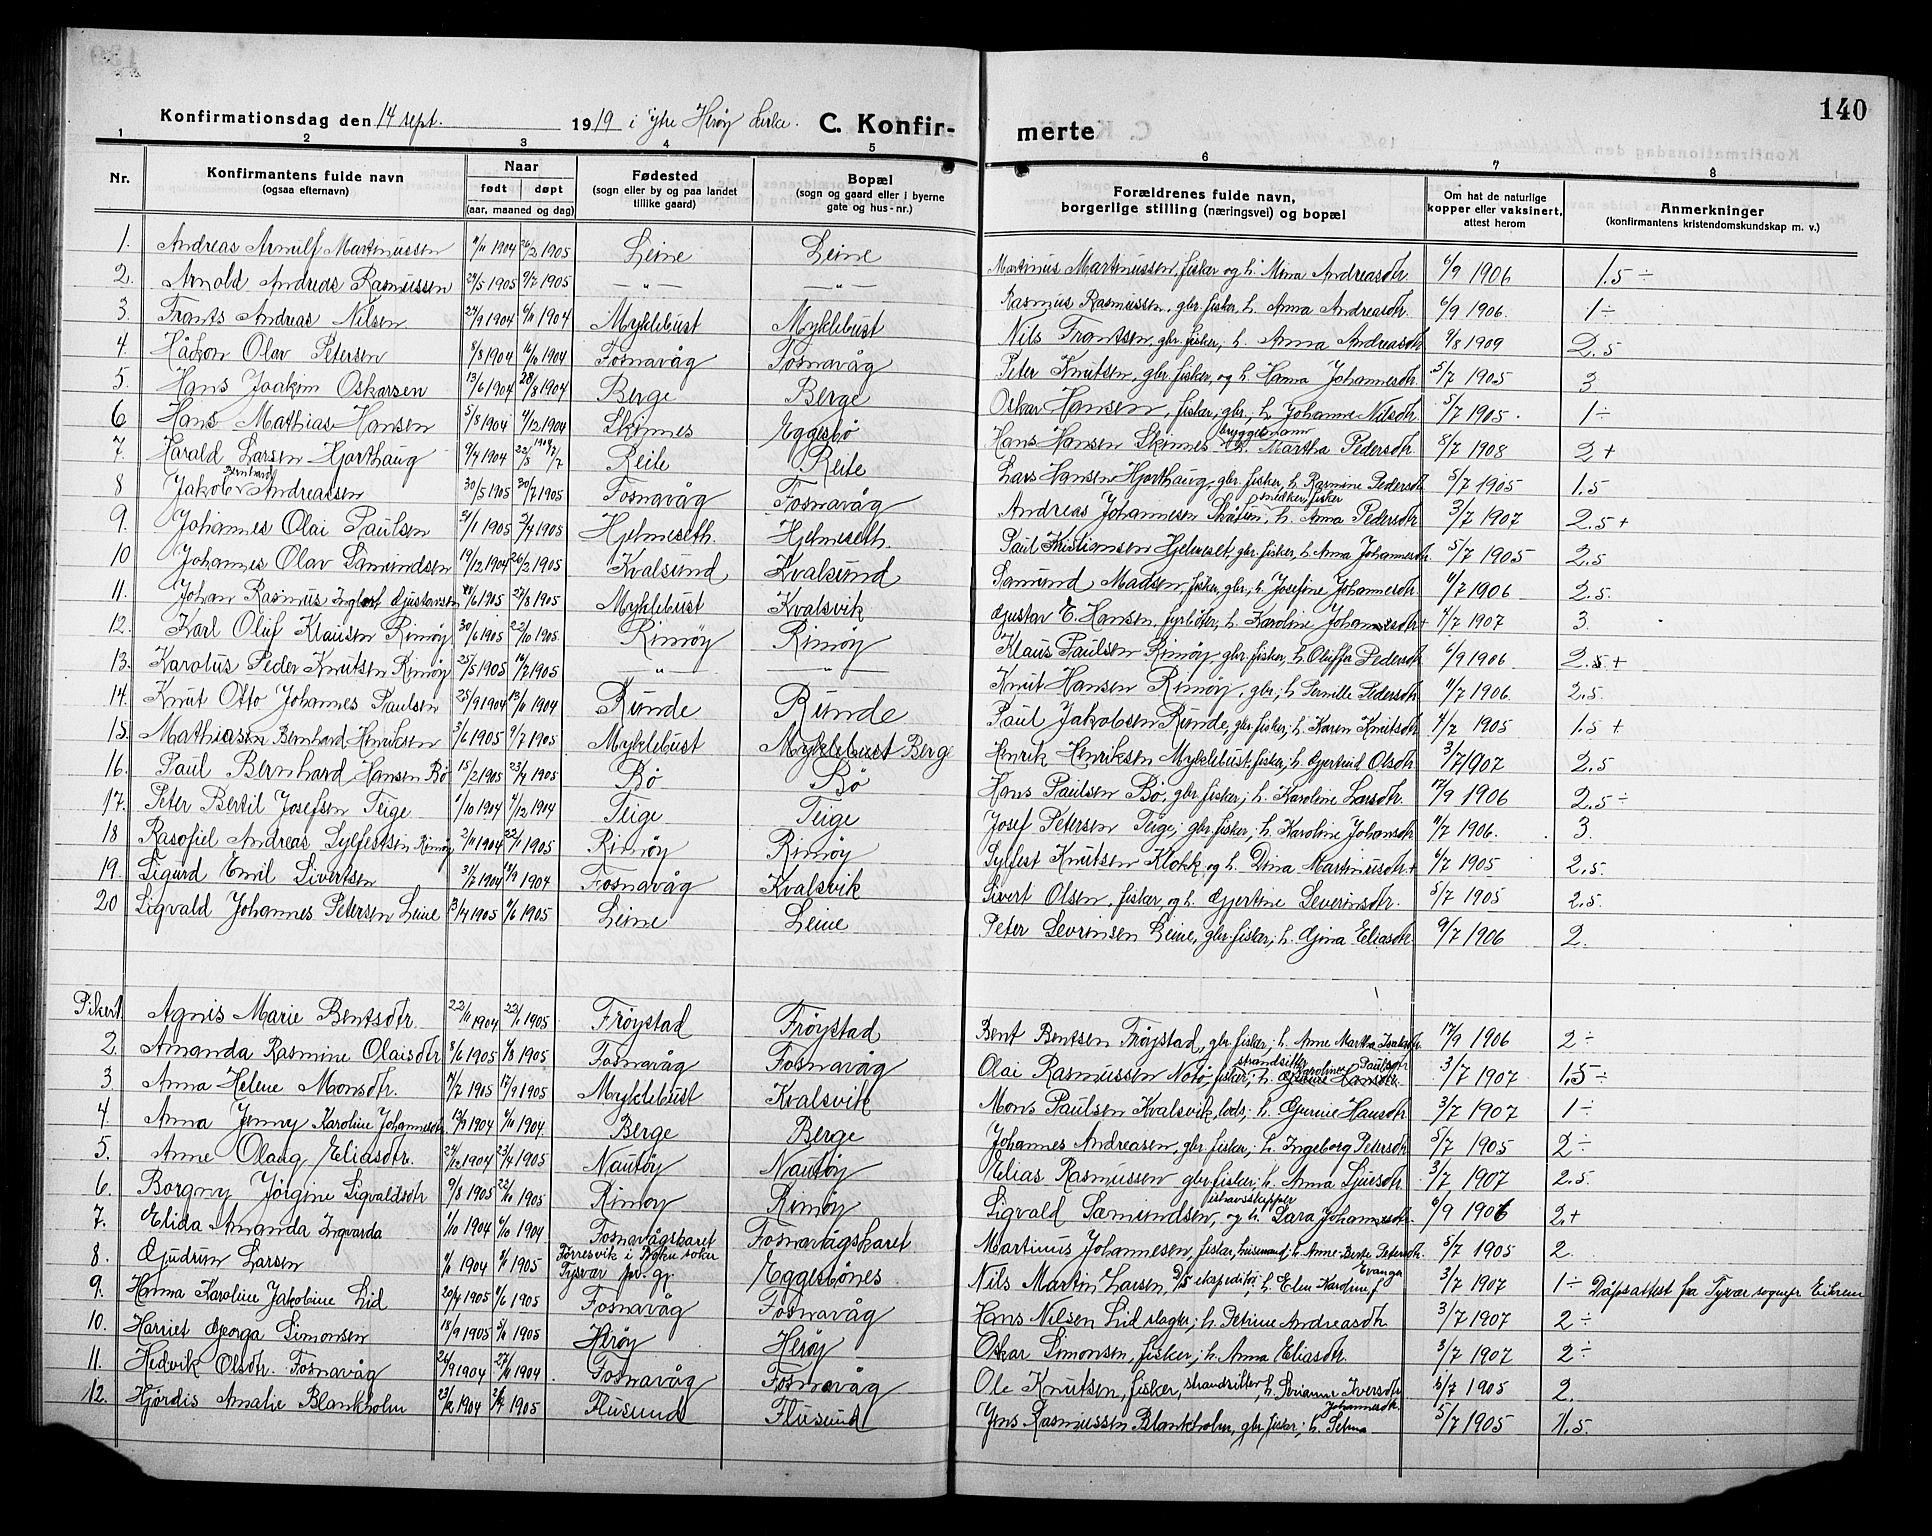 140
Konfirmationsdag den 14 sept. 1919 i Ytre Herøy kirke. C. Konfirmerte
1 2 3 4 5 6 7 8
Nr. Konfirmantens fulde navn (ogsaa efternavn) Naar født døpt (aar, maaned og dag) Fødested (sogn eller by og paa landet tillike gaard) Bopæl (sogn og gaard eller i byerne gate og hus-nr.) Forældrenes fulde navn, borgerlige stilling (næringsvei) og bopæl Om hat de naturlige kopper eller vaksinert, attest herom Anmerkninger (konfirmantens kristendomskundskap m. v.)
1. Andreas Arnulf Martinussen 11/11 1904 26/2 1905 Leine Leine Martinus Martinussen, fisker og h. Mina Andreasdtr. 6/9 1906 1.5 ÷
2. Arnold Andreas Rasmussen 24/5 1905 9/7 1905 — " — — " — Rasmus Rasmussen, gbr. fisker, h. Anna Andreasdtr. 6/9 1906. 1 ÷
3. Frants Andreas Nilsen 24/9 1904 6/11 1904 Myklebust Myklebust Nils Frantsen, gbr. fisker, h. Anna Andreasdtr 9/8 1909 2.5
4. Håkon Olav Petersen 8/8 1904 16/10 1904 Fosnavåg Fosnavåg Peter Knutsen, gbr. fisker, og h. Hanna Johannesdtr. 5/7 1905 3
5. Hans Joakim Oskarsen 13/6 1904 28/8 1904 Berge Berge Oskar Hansen, fisker, gbr., h. Johanne Nilsdtr. 5/7 1905. 1 ÷
6 Hans Mathias Hansen 5/8 1904 4/12 1904 Skinnes Eggesbø Hans Hansen Skinnes bryggemann h. Martha Pedersdtr. 8/7 1908 2 +
7. Harald Larsen Hjorthaug 9/7 1904 Reite Reite Lars Hansen Hjorthaug, gbr. fisker, h. Rasmine Pedersdtr 5/7 1905 1.5
8 Jakob Bernhard Andreassen 30/5 1905 30/7 1905 Fosnavåg Fosnavåg Andreas Johannesen snedker, fisker, h. Anna Pedersdtr 3/7 1907 2.5 +
9. Johannes Olai Paulsen 2/1 1905 2/4 1905 Hjelmeseth. Hjelmeseth. Paul Kristiansen Hjelmeset, gbr. fisker, h. Anna Johannesdtr. 5/7 1905 2.5
10 Johannes Olav Samundsen 19/12 1904 26/2 1905 Kvalsund Kvalsund Samund Madsen, fisker, gbr., h. Josefine Johannesdtr. 6/7 1906 2.5.
11. Johan Rasmus Inglert Gjustavsen 1905 27/8 1905 Myklebust Kvalsvik Gjustav E. Hansen, fyrbøter, h. Karoline Johannesdtr + 4/7 1907 3.
12. Karl Oluf Klausen Rimøy 30/6 1905 22/10 1905. Rimøy Rimøy Klaus Paulsen Rimøy, gbr. fisker, h. Oluffa Pedersdtr 6/9 1906 2.5 +
13. Karolus Peder Knutsen Rimøy 25/5 1905 16/7 1905 " — " — Knut Hansen Rimøy, gbr., h. Pernille Pedersdtr. 11/7 1906. 2.5.
14. Knut Otto Johannes Paulsen 25/9 1904 13/11 1904 Runde Runde Paul Jakobsen Runde, gbr. fisker, h. Karen Knutsdtr. 4/7 1905 1.5 +
15. Mathiasen Bernhard Henriksen 3/6 1905 9/7 1905. Myklebust Myklebust Berg Henrik Henriksen Myklebust, fisker, h. Gjertrud Olsdtr 3/7 1907 2.5
16. Paul Bernhard Hansen Bø 15/2 1905 23/4 1905 Bø Bø Hans Paulsen Bø, gbr. fisker; h. Karoline Larsdtr. 17/9 1906 2.5 ÷
17. Peter Bertil Josefsen Teige 1/10 1904 4/12 1904 Teige Teige Josef Petersen Teige, gbr. fisker; h. Karoline Johansdtr. 11/7 1906. 3.
18 Rasofiel Andreas Sylfestsen Rimøy 2/11 1904 22/1 1905 Rimøy Rimøy Sylfest Knutsen Klokk og h. Dina Martinusdtr. + 6/7 1905 2.5.
19. Sigurd Emil Sivertsen 31/7 1904 18/9 1904 Fosnavåg Kvalsvik Sivert Olsen, fisker, og h. Gjertine Severinsdtr. 5/7 1905 2.5.
20 Sigvald Johannes Petersen Leine 13/4 1905 11/6 1905 Leine Leine Peter Sevrinsen Leine, gbr. fisker; h. Gjina Eliasdtr. 9/7 1906 2.
Piker 1. Agnis Marie Bentsdtr. 22/11 1904 22/1 1905 Frøystad Frøystad Bent Bentsen Frøystad, gbr. fisker; h. Anne Martha Isaksdtr. 17/9 1906 2 ÷
2. Amanda Rasmine Olaisdtr 8/6 1905 6/8 1905 Fosnavåg Fosnavåg Olai Rasmussen Notø, fisker, strandsitter, h. Karoline Paulsdtr 3/7 1907 1.5 ÷
3. Anna Helene Monsdtr. 7/7 1905 17/9 1905 Myklebust Kvalsvik Mons Paulsen Kvalsvik, lods; h. Gurine Hansdtr 3/7 1907 1 ÷
4. Anna Jenny Karoline Johannesdtr. 13/9 1904 6/11 1904 Berge Berge Johannes Andreasen, gbr. fisker, h. Ingeborg Petersdtr 5/7 1905 2 ÷
5. Anne Olaug Eliasdtr. 24/12 1904 23/4 1905 Nautøy Nautøy Elias Rasmussen gbr. fisker, h. Anna Sjursdtr. 3/7 1907 2.5.
6. Borgny Jørgine Sigvaldsdtr 9/8 1905 22/10 1905 Rimøy Rimøy Sigvald Sæmundsen, ishavsskipper og h. Sara Johannesdtr. 6/9 1906 2. +
7. Elida Amanda Ingvarda 1/10 1904 6/11 1904 Fosnavågskaret Fosnavågskaret Martinus Johannesen, fisker, husmand, h. Anne-Berte Petersdtr. 5/7 1905 2.
8. Gjudrun Larsen 1904 1905 Førresvik i Bokn sokn Tysvær pr. gj. Eggesbønes Nils Martin Larsen, D/S ekspeditør, h. Elen Karoline f. Evanger 3/7 1907 1 ÷ Dåpsattest fra Tysvær sognepr. Eikrem
9. Hanna Karoline Jakobine Lid 20/4 1905 11/6 1905 Fosnavåg Fosnavåg Hans Nilsen Lid slagter; h. Petrine Andreasdtr 3/7 1907 2 ÷
10. Harriet Georga Simonsen 18/9 1905 5/11 1905 Herøy Herøy Oskar Simonsen, fisker; h. Anna Eliasdtr. 3/7 1907 2 ÷
11. Hedvik Olsdtr. Fosnavåg 26/9 1904 27/11 1904 Fosnavåg Fosnavåg Ole Knutsen, fisker, strandsitter, h. Serianne Iversdtr 5/7 1905 2.
12. Hjørdis Amalie Blankholm 23/12 1904 1905 Flusund Flusund Jens Rasmussen Blankholm, gbr. fisker; h. Petrina Johannesdtr. 5/7 1905 1.5.